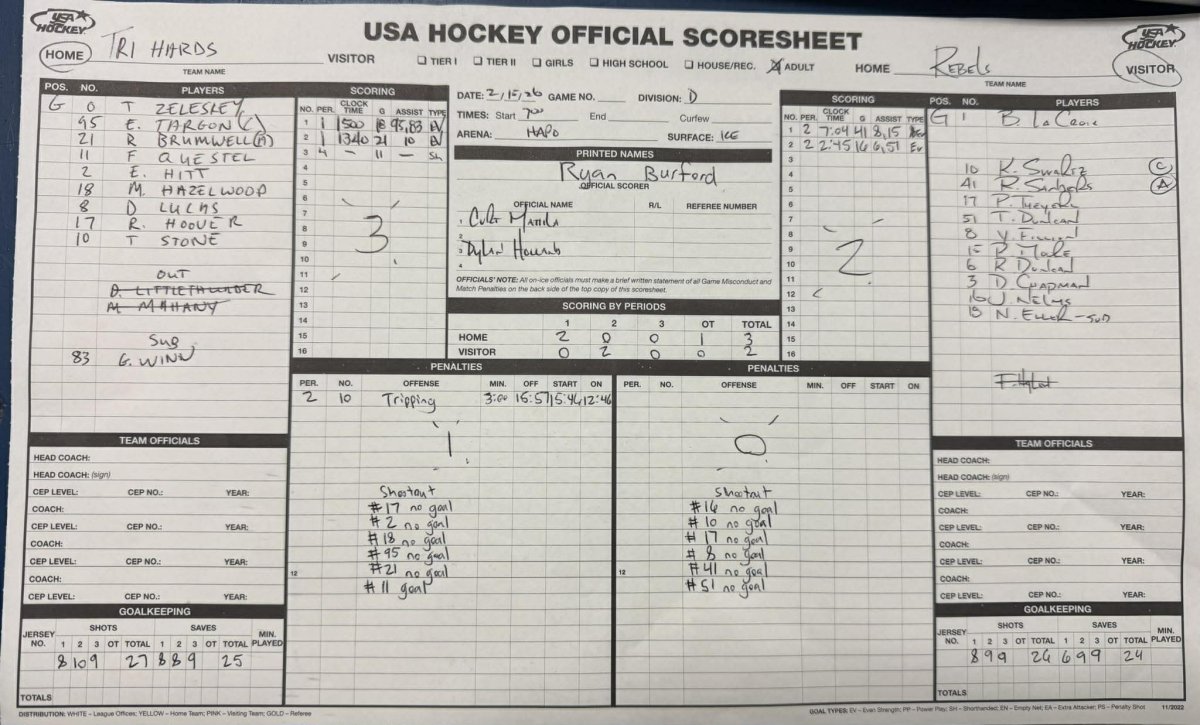 USA HOCKEY
USA HOCKEY OFFICIAL SCORESHEET
USA HOCKEY
HOME TRI HARDS VISITOR
TEAM NAME
☐ TIER I ☐ TIER II ☐ GIRLS ☐ HIGH SCHOOL ☐ HOUSE/REC. ☒ ADULT
HOME Rebels VISITOR
TEAM NAME
POS. NO. PLAYERS
G 0 T ZELESKEY
95 E. TARGON (C)
21 R BRUMWELL (A)
11 F QUESTEL
2 E. HITT
18 M. HAZELWOOD
8 D LUCAS
17 R. HOOVER
10 T STONE
OUT
D. LITTLETHUNDER
M MAHANY
Sub
83 G. WINN
SCORING
NO. PER. CLOCK TIME G ASSIST TYPE
1 1 1500 8 95,83 EV
2 1 1340 21 10 EV
3 4 — 11 — Sh
4
5
6
7
8
9
10
11
12
13
14
15
16
3
DATE: 2/15/26 GAME NO. DIVISION: D
TIMES: Start 700 End Curfew
ARENA: HAPO SURFACE: ICE
PRINTED NAMES
Ryan Burford
OFFICIAL SCORER
OFFICIAL NAME R/L REFEREE NUMBER
1 Curt Mattila
2
3 Dylan
4
OFFICIALS' NOTE: All on-ice officials must make a brief written statement of all Game Misconduct and
Match Penalties on the back side of the top copy of this scoresheet.
SCORING BY PERIODS
1 2 3 OT TOTAL
HOME 2 0 0 1 3
VISITOR 0 2 0 0 2
SCORING
NO. PER. CLOCK TIME G ASSIST TYPE
1 2 7:04 41 8,15 Ev
2 2 2:45 16 6,51 Ev
3
4
5
6
7
8
9
10
11
12
13
14
15
16
2
POS. NO. PLAYERS
G 1 B. La Croix
10 K. Swartz (C)
41 R. (A)
17 P.
51 T. Duncan
8 V.
15 R.
6 R Duncan
3 D. CHAPMAN
16 J. Nelms
19 N. Eller - SUB
PENALTIES
PER. NO. OFFENSE MIN. OFF START ON
2 10 Tripping 3:00 15:57 15:46 12:46
1
Shootout
#17 no goal
#2 no goal
#18 no goal
#95 no goal
#21 no goal
12
#11 goal
PENALTIES
PER. NO. OFFENSE MIN. OFF START ON
0
Shootout
#16 no goal
#10 no goal
#17 no goal
#8 no goal
12 #41 no goal
#51 no goal
TEAM OFFICIALS
HEAD COACH:
HEAD COACH: (sign)
CEP LEVEL: CEP NO.: YEAR:
COACH:
CEP LEVEL: CEP NO.: YEAR:
COACH:
CEP LEVEL: CEP NO.: YEAR:
COACH:
CEP LEVEL: CEP NO.: YEAR:
GOALKEEPING
JERSEY NO. SHOTS SAVES MIN. PLAYED
1 2 3 OT TOTAL 1 2 3 OT TOTAL
8 10 9 27 8 8 9 25
TOTALS
TEAM OFFICIALS
HEAD COACH:
HEAD COACH: (sign)
CEP LEVEL: CEP NO.: YEAR:
COACH:
CEP LEVEL: CEP NO.: YEAR:
COACH:
CEP LEVEL: CEP NO.: YEAR:
COACH:
CEP LEVEL: CEP NO.: YEAR:
GOALKEEPING
JERSEY NO. SHOTS SAVES MIN. PLAYED
1 2 3 OT TOTAL 1 2 3 OT TOTAL
8 9 9 26 6 9 9 24
TOTALS
DISTRIBUTION: WHITE – League Offices; YELLOW – Home Team; PINK – Visiting Team; GOLD – Referee
GOAL TYPES: EV – Even Strength; PP – Power Play; SH – Shorthanded; EN – Empty Net; EA – Extra Attacker; PS – Penalty Shot 11/2022